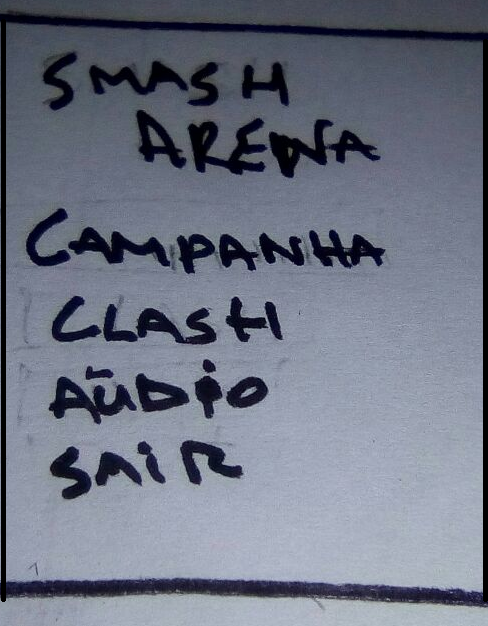 SMASH
ARENA
CAMPANHA
CLASH
AÚDIO
SAIR